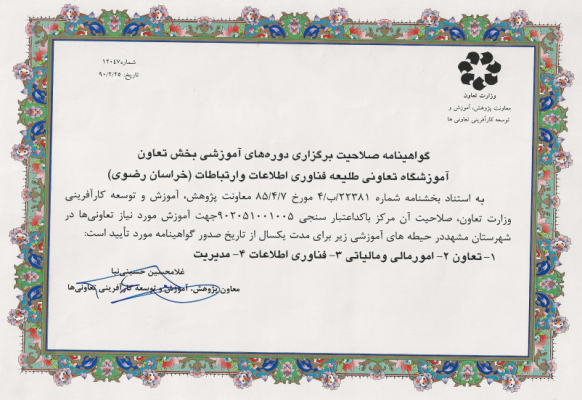 شماره: ۱۲۰۴۷
تاریخ: ۹۰/۲/۲۵
وزارت تعاون
معاونت پژوهش، آموزش و
توسعه کارآفرینی تعاونی ها
گواهینامه صلاحیت برگزاری دوره‌های آموزشی بخش تعاون
آموزشگاه تعاونی طلیعه فناوری اطلاعات وارتباطات (خراسان رضوی)
به استناد بخشنامه شماره ۴/ب/۲۲۳۸۱ مورخ ۸۵/۴/۷ معاونت پژوهش، آموزش و توسعه کارآفرینی
وزارت تعاون، صلاحیت آن مرکز باکداعتبار سنجی ۹۰۲۰۵۱۰۰۱۰۰۵جهت آموزش مورد نیاز تعاونی‌ها در
شهرستان مشهددر حیطه های آموزشی زیر برای مدت یکسال از تاریخ صدور گواهینامه مورد تأیید است:
۱- تعاون ۲- امورمالی ومالیاتی ۳- فناوری اطلاعات ۴- مدیریت
غلامحسین حسینی‌نیا
معاون پژوهش، آموزش و توسعه کارآفرینی تعاونی‌ها